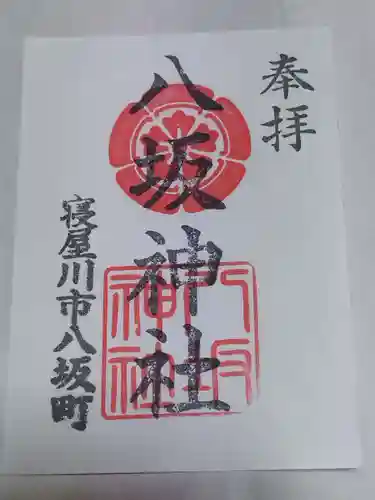 奉拝
八坂神社
八坂神社
寝屋川市八坂町